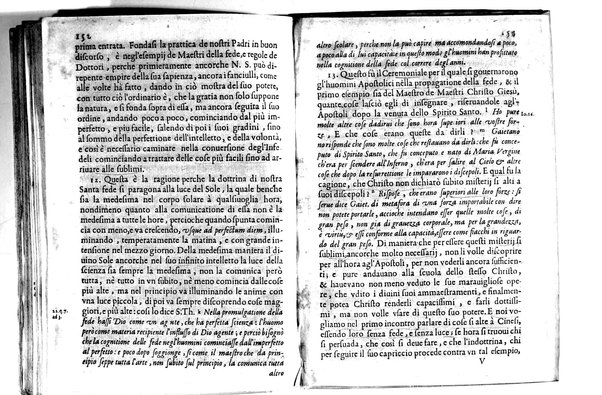 152
prima entrata. Fondasi la prattica de nostri Padri in buon
discorso, è negl'essempij de Maestri della fede, e regole de
Dottori, perche primieramente ancorche N. S. può di
repente empire della sua sapienza, ancora i fanciulli, come
alle volte hà fatto, dando in ciò mostra del suo potere,
con tutto ciò l'ordinario è, che la gratia non solo suppone
la natura, e si fonda sopra di essa, ma ancora seguita il suo
ordine, andando poco a poco, cominciando dal più im-
perfetto, e più facile, salendo di poi i suoi gradini, sino
al sommo della perfettione dell'intelletto, e della volontà,
e così è necessario caminare nella conuersione degl'Infe-
deli cominciando a trattare delle cose più facili sino ad ar-
riuare alle sublimi.
12. Questa è la ragione perche la dottrina di nostra
Santa fede si paragona alla luce del Sole, la quale benche
sia la medesima nel corpo solare à qualsiuoglia hora,
nondimeno quanto alla communicatione di essa non è la
medesima a tutte le hore, percioche quando spunta comin-
cia con meno, e và crescendo, usque ad perfectam diem, il-
luminando, temperatamente la matina, e con grande in-
tensione nel mezzo giorno. Della medesima maniera il di-
uino Sole ancorche nel suo infinito intelletto la luce della
scienza sia sempre la medesima, non la communica però
tutta, nè tutto in vn subito, nè meno comincia dalle cose
più alte, ma nel principio và illuminando le anime con
vna luce piccola, di poi và sempre discoprendo cose mag-
giori, e più alte; così lo dice S. Th. Nella promulgatione della
fede hassi Dio come vn agente, che hà perfetta scienza: l huomo
però come materia recipiente l'influsso di Dio agente; e perciò bisognò
che la cognitione delle fede negl'huomini cominciasse dall'imperfetto
al perfetto: e poco dopo soggionge, si come il maestro che da prin-
cipio seppe tutta l'arte, non subito sul principio, la communica tutta
altro
altro scolare, perche non la può capire ma accomondandosi a poco,
a poco alla di lui capacità: e in questo modo gl'huomini han profitato
nella cognitione della fede col correre degl'anni.
13. Questo fù il Ceremoniale per il quale si gouernarono
gl'huomini Apostolici nella propagatione della fede, & il
primo essempio sia del Maestro de Maestri Christo Giesù,
quante cose lasciò egli di insegnare, riseruandole agl'
Apostoli, dopo la venuta dello Spirito Santo. Ho pure
molte altre cose dadirui che sono hora superiori alle vostre for-
&, E che cose erano queste da dirli? Gaietano
risponde che sono molte cose che restauano da dirli: che fù conce-
puto di Spirito Santo, che fù conceputo e nato da Maria Vergine
ch'era per scendere all'Inferno, ch'era per salire al Cielo & altre
cose che dopo la resurrettione le impararono i discepoli. E qual fù la
cagione, che Christo non dichiarò subito misterij sì alti a
suoi discepoli? Rispose, che erano superiori alle loro forze: si
serue dice Gaiet. di metafora di vna forza imporabil con dire
non potete portarle, acciohe intendano esser quelle molte cose, di
gran peso, non già di grauezza corporale, ma per la grandezza,
e virtù, & essi conforme alla capacità, essere come fiacchi in riguardo
del gran peso. Di maniera che per essere questi misterij sì
sublimi, ancorche molto necessarij, non li volle discoprire
per all'hora agl'Apostoli, per non vederli ancora sufficien-
ti; e pure andauano alla scuola dello stesso Christo,
& haueuano non meno veduto le sue marauigliose ope-
re, che vdito i diuini suoi ammaestramenti, e finalmen-
te potea Christo renderli capacissimi, e farli dottissi-
mi, ma non volle vsare di questo suo potere. E noi vo-
gliamo nel primo incontro parlare di cose sì alte à Cinesi,
essendo loro senza fede, e senza luce, se hora si troui chi
si persuada, che così si deue fare, e che l'indottrina, chi
per seguire il suo capriccio procede contra vn tal esempio,
V